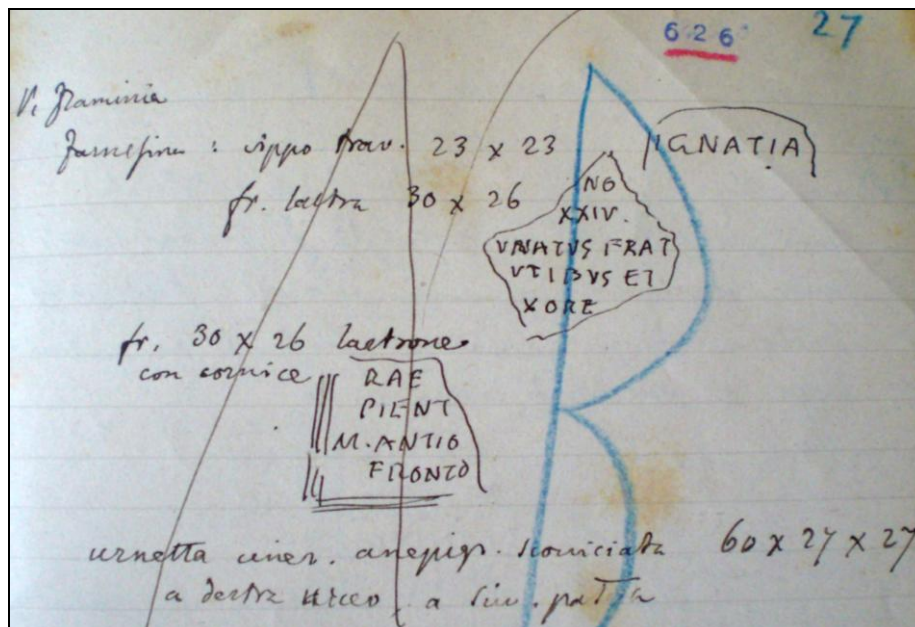 626 27
V. Flaminia
Farnesina : cippo trav. 23 x 23 IGNATIA
fr. lastra 30 x 26
NO
XXIV.
VNATVS FRAT
VTIBVS ET
XORE
fr. 30 x 26 lastrone
con cornice
RAE
PIENT
M. ANTIO
FRONTO
urnetta ciner. anepigr. scorniciata 60 x 27 x 27
a destra urceo, a sin. patra